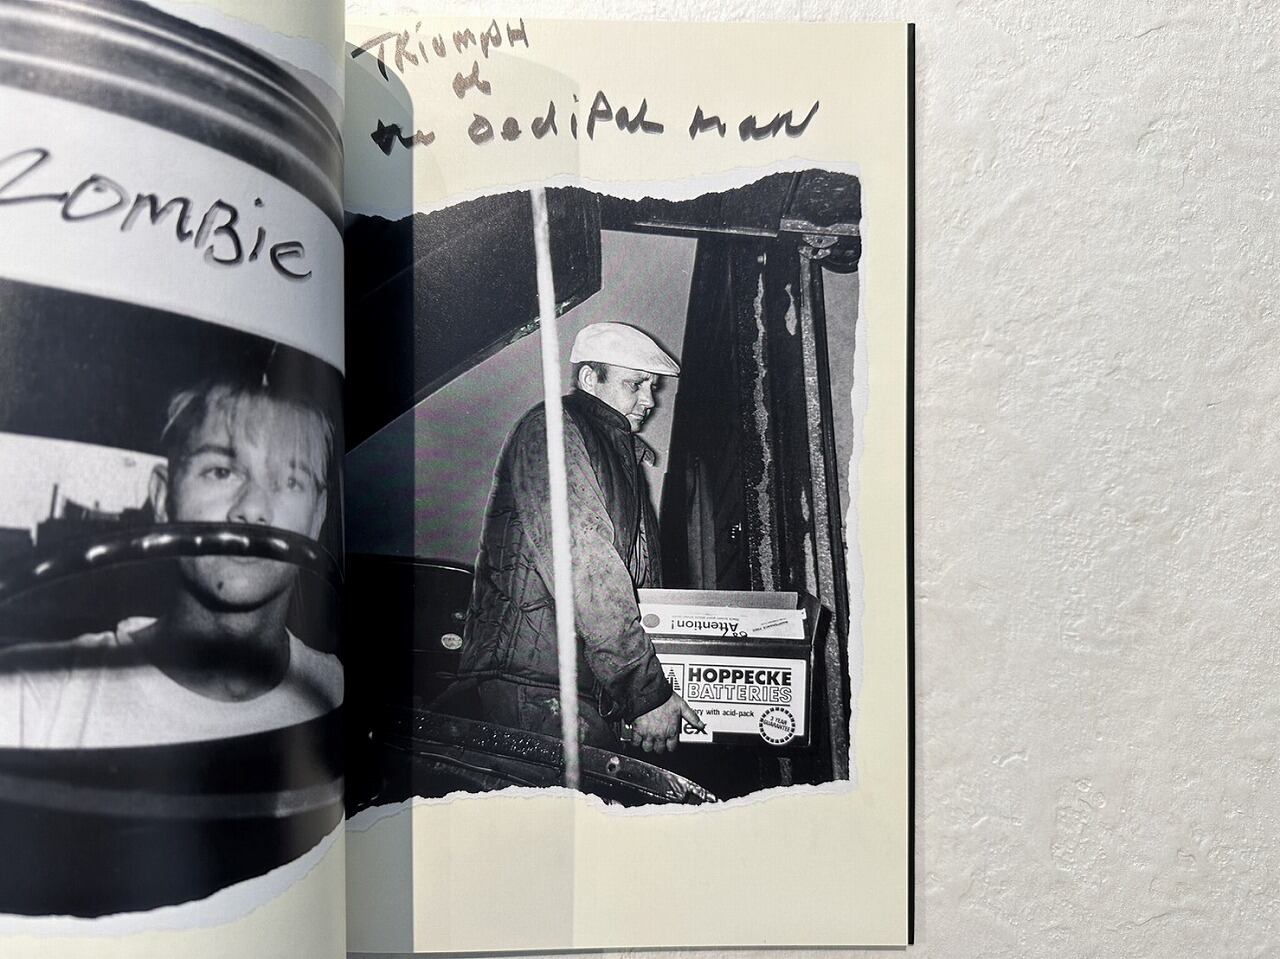 ZOMBie
TRiUMpH
of
the OediPaL man
Attention!
HOPPECKE
BATTERIES
ry with acid-pack
ex
3 YEAR
GUARANTEE